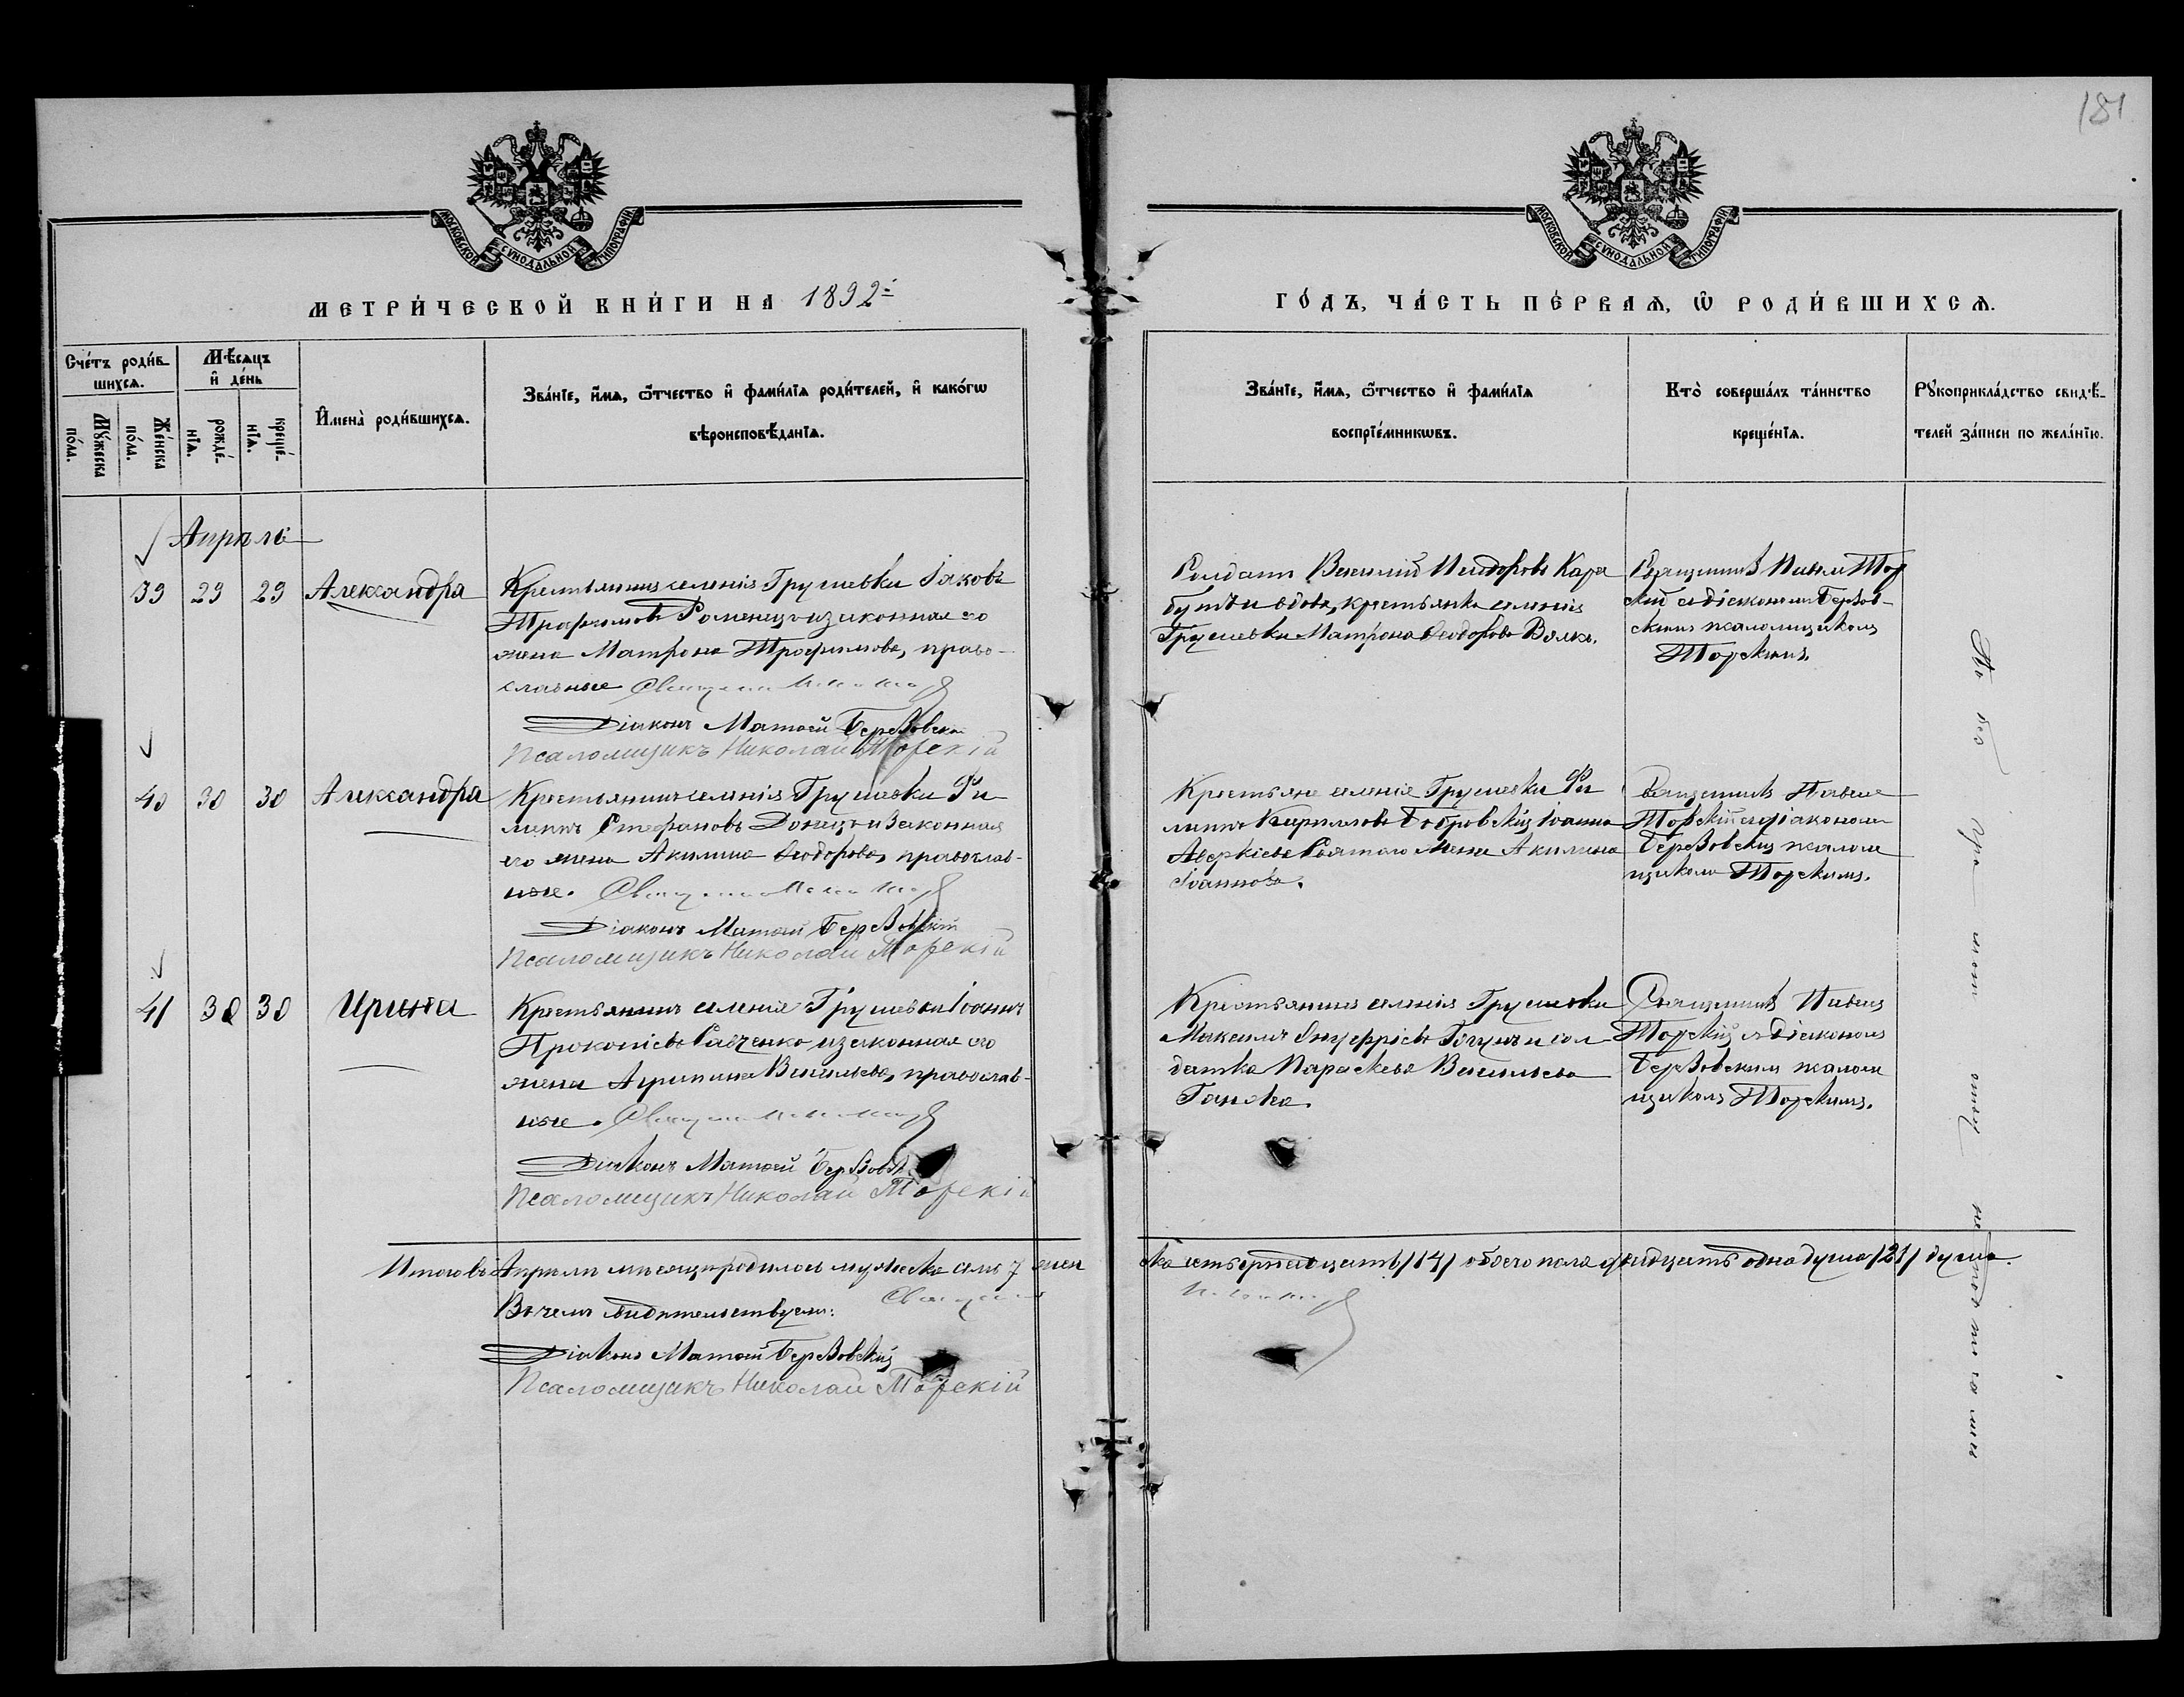 181
МОСКОВСКОЙ СѴНОДАЛЬНОЙ ТИПОГРАФІИ
МОСКОВСКОЙ СѴНОДАЛЬНОЙ ТИПОГРАФІИ
МЕТРИ́ЧЕСКОЙ КНИ́ГИ НА 1892=
ГО́ДЪ, ЧА́СТЬ ПЕ́РВАѦ, Ѡ҆ РОДИ́ВШИХСѦ.
Сче́тъ роди́в
шихсѧ.
Мꙋ́жеска
по́ла.
Же́нска
по́ла.
Мѣ́сѧцъ
и҆ де́нь
рожде́-
нїѧ.
креще́-
нїѧ.
И҆мена̀ роди́вшихсѧ.
Зва́нїе, и҆́мѧ, ѻ҆́тчество и҆ фами́лїѧ роди́телей, и҆ како́гѡ
вѣроисповѣ́данїѧ.
Зва́нїе, и҆́мѧ, ѻ҆́тчество и҆ фами́лїѧ
воспрїе́мникѡвъ.
Кто̀ соверша́лъ та́инство
креще́нїѧ.
Рꙋкоприкла́дство свидѣ́-
телей за́писи по жела́нїю.
Апрѣль
39 29 29 Александра
Крестьянинъ селенія Грушевки Іаковъ
Трофимовъ Роменецъ и законная его
жена Матрона Трофимова, право-
славные Священникъ
Діаконъ Матѳей Березовскій
Псаломщикъ Николай Торскій
Солдатъ Василій Исидоровъ Кара
бутъ и вдова, крестьянка селенія
Грушевки Матрона Ѳеодорова Волкъ.
Священникъ Павелъ Тор
скій съ діакономъ Березов-
скимъ псаломщикомъ
Торскимъ.
40 30 30 Александра
Крестьянинъ селенія Грушевки Фи
липпъ Стефановъ Донецъ и законная
его жена Акилина Ѳеодорова, православ-
ные. Священникъ
Діаконъ Матѳей Березовскій
Псаломщикъ Николай Торскій
Крестьяне селенія Грушевки Фи
липпъ Кирилловъ Бобровскій Іоанна
Аверкіева Святого жена Акилина
Іоаннова.
Священникъ Павелъ
Торскій съ діакономъ
Березовскимъ псалом
щикомъ Торскимъ.
41 30 30 Ирина
Крестьянинъ селенія Грушевки Іоаннъ
Прокопіевъ Савченко и законная его
жена Агрипина Васильева, православ-
ные. Священникъ
Діаконъ Матѳей Березовскій
Псаломщикъ Николай Торскій
Крестьянинъ селенія Грушевки
Максимъ Онуфріевъ Гогунъ и сол-
датка Параскева Васильева
Ганжа.
Священникъ Павелъ
Торскій съ Діакономъ
Березовскимъ псалом
щикомъ Торскимъ.
Итого въ Апрѣлѣ мѣсяцѣ родилось мужеска пола 7 жен
ска четырнадцать /14/ обоего пола двадцать одна душа /21/ душа.
Въ чемъ свидѣтельствуемъ: Священникъ
Діаконъ Матѳей Березовскій
Псаломщикъ Николай Торскій